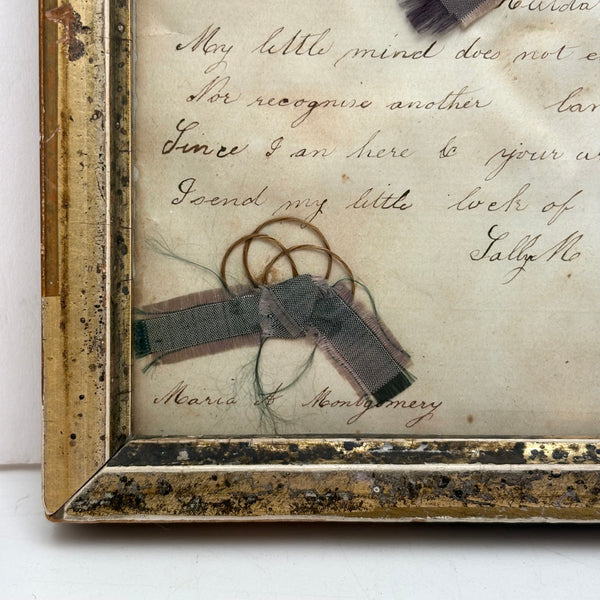 Hulda
My little mind does not e
Nor recognise another lan
Since I an here & your ar
I send my little lock of
Sally M
Maria A Montgomery